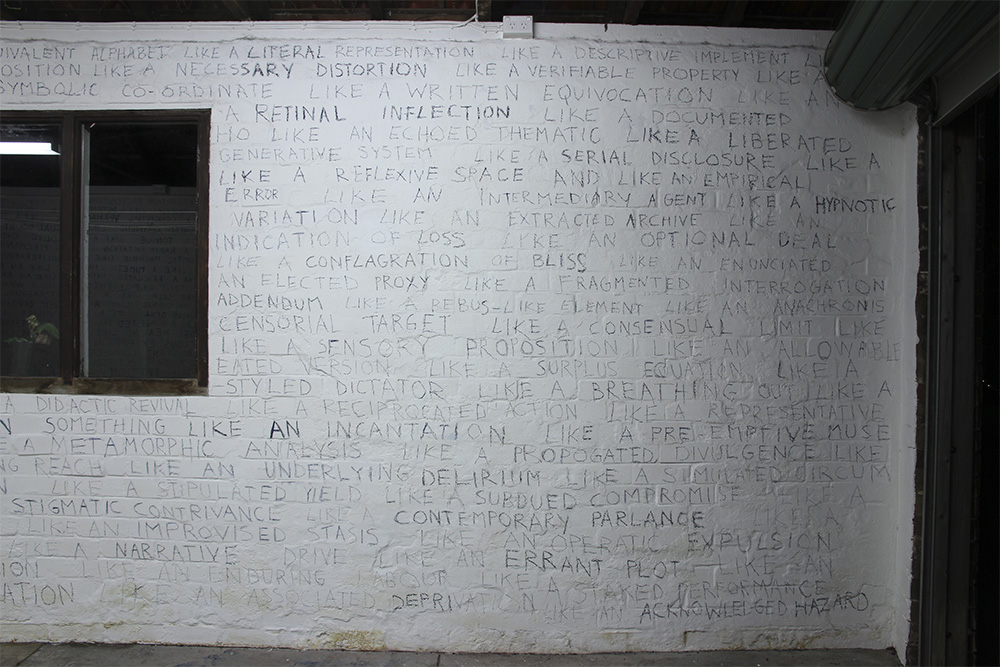 IVALENT ALPHABET LIKE A LITERAL REPRESENTATION LIKE A DESCRIPTIVE IMPLEMENT LI
OSITION LIKE A NECESSARY DISTORTION LIKE A VERIFIABLE PROPERTY LIKE A
SYMBOLIC CO-ORDINATE LIKE A WRITTEN EQUIVOCATION LIKE AN
A RETINAL INFLECTION LIKE A DOCUMENTED
HO LIKE AN ECHOED THEMATIC LIKE A LIBERATED
GENERATIVE SYSTEM LIKE A SERIAL DISCLOSURE LIKE A
LIKE A REFLEXIVE SPACE AND LIKE AN EMPIRICAL
ERROR LIKE AN INTERMEDIARY AGENT LIKE A HYPNOTIC
VARIATION LIKE AN EXTRACTED ARCHIVE LIKE AN
INDICATION OF LOSS LIKE AN OPTIONAL DEAL
LIKE A CONFLAGRATION OF BLISS LIKE AN ENUNCIATED
AN ELECTED PROXY LIKE A FRAGMENTED INTERROGATION
ADDENDUM LIKE A REBUS-LIKE ELEMENT LIKE AN ANACHRONIS
CENSORIAL TARGET LIKE A CONSENSUAL LIMIT LIKE
LIKE A SENSORY PROPOSITION LIKE AN ALLOWABLE
EATED VERSION LIKE A SURPLUS EQUATION LIKE A
STYLED DICTATOR LIKE A BREATHING OUT LIKE A
A DIDACTIC REVIVAL LIKE A RECIPROCATED ACTION LIKE A REPRESENTATIVE
N SOMETHING LIKE AN INCANTATION LIKE A PRE-EMPTIVE MUSE
E A METAMORPHIC ANALYSIS LIKE A PROPOGATED DIVULGENCE LIKE
NG REACH LIKE AN UNDERLYING DELIRIUM LIKE A SIMULATED CIRCUM
N LIKE A STIPULATED YIELD LIKE A SUBDUED COMPROMISE LIKE A
STIGMATIC CONTRIVANCE LIKE A CONTEMPORARY PARLANCE LIKE A
LIKE AN IMPROVISED STASIS LIKE AN OPERATIC EXPULSION
LIKE A NARRATIVE DRIVE LIKE AN ERRANT PLOT LIKE AN
ION LIKE AN ENDURING LABOUR LIKE A STAKED PERFORMANCE
ATION LIKE AN ASSOCIATED DEPRIVATION LIKE AN ACKNOWLELGED HAZARD